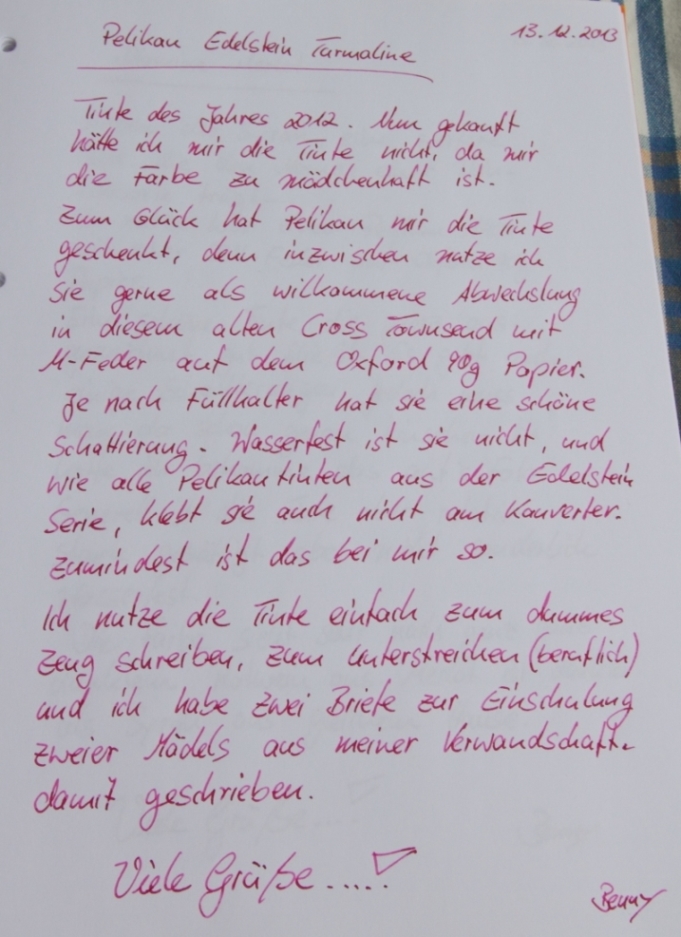 Pelikan Edelstein Turmaline
13.12.2013
Tinte des Jahres 2012. Nun gekauft
hätte ich mir die Tinte nicht, da mir
die Farbe zu mädchenhaft ist.
Zum Glück hat Pelikan mir die Tinte
geschenkt, denn inzwischen nutze ich
sie gerne als willkommene Abwechslung
in diesem alten Cross Townsend mit
M-Feder auf dem Oxford 90g Papier.
Je nach Füllhalter hat sie eine schöne
Schattierung. Wasserfest ist sie nicht, und
wie alle Pelikantinten aus der Edelstein
Serie, klebt sie auch nicht am Konverter.
Zumindest ist das bei mir so.
Ich nutze die Tinte einfach zum dummes
Zeug schreiben, zum Unterstreichen (beruflich)
und ich habe zwei Briefe zur Einschulung
zweier Mädels aus meiner Verwandschaft
damit geschrieben.
Viele Grüße.....!
Benny